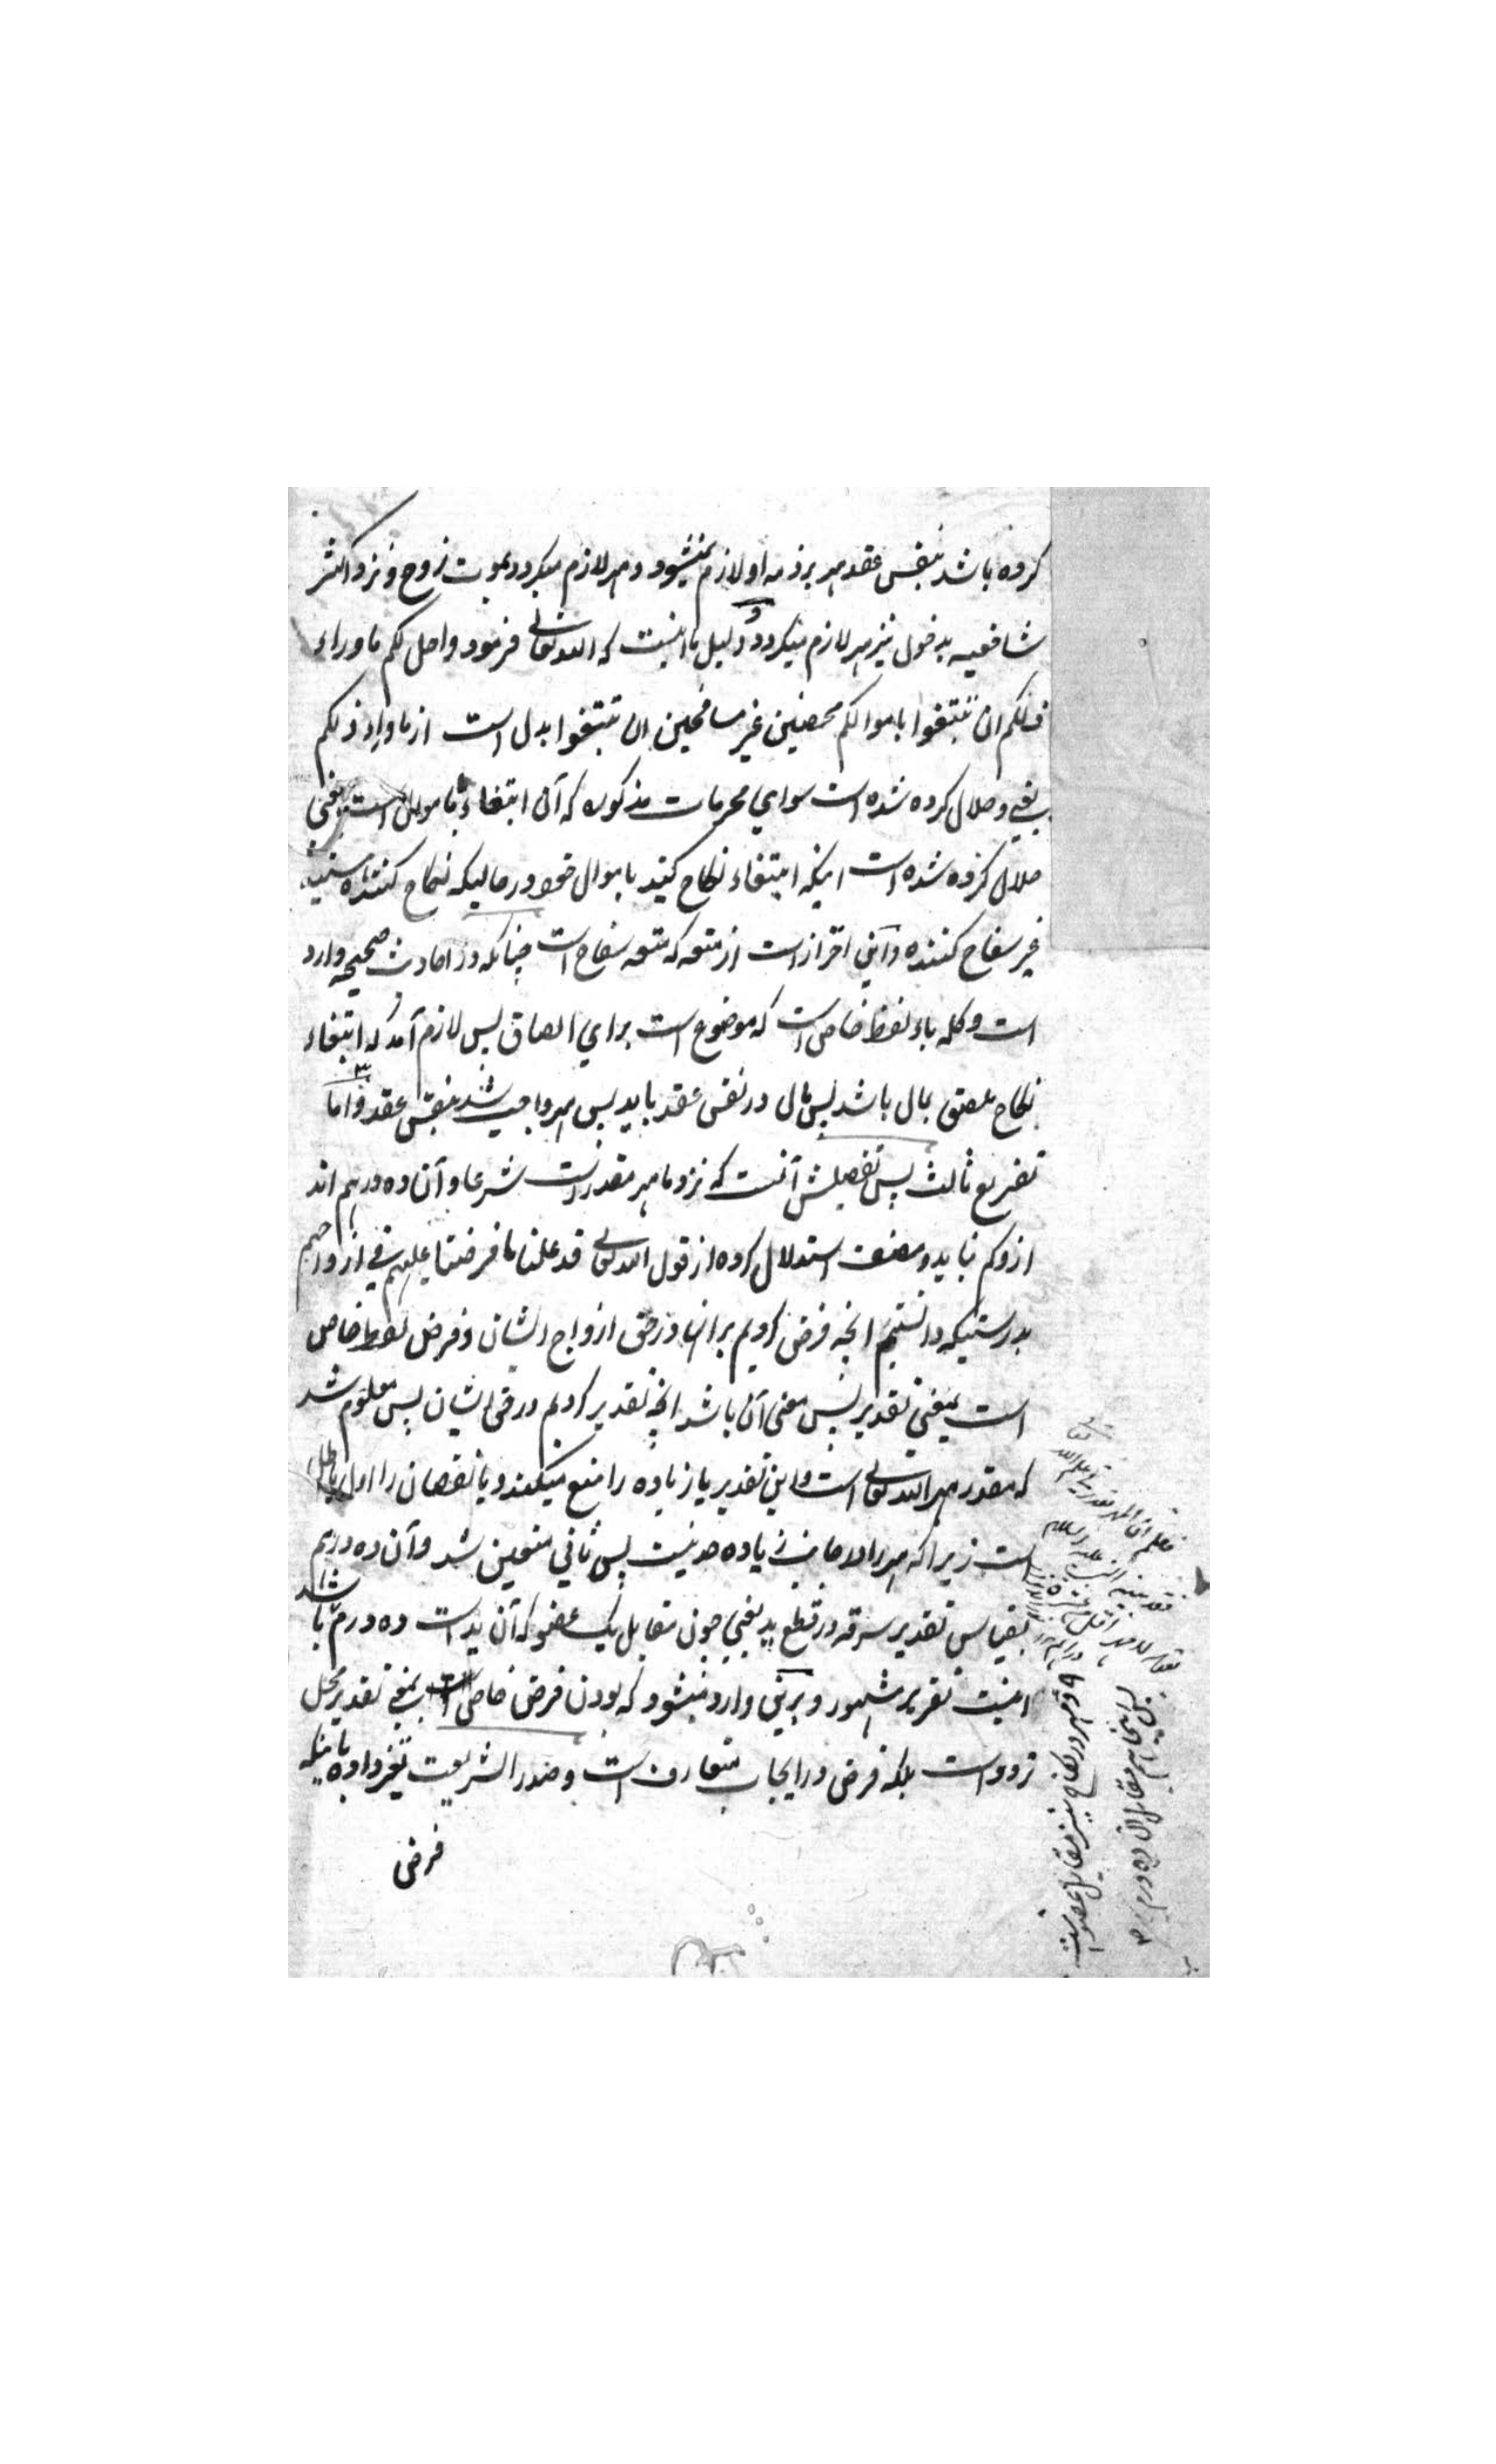 کرده باشد بنفس عقد مهر بر ذمه او لازم نمیشود و مهر لازم میگردد بموت زوج و نزد اکثر
شافعیه بدخول نیز مهر لازم میگردد و دلیل ما اینست که الله تعالی فرمود واحل لکم ما وراء
ذلکم ان تبتغوا باموالکم محصنین غیر مسافحین ان تبتغوا بدل است از ما وراء ذلکم
یعنی و حلال کرده شده است سوای محرمات مذکوره که آن ابتغاء باموال است یعنی
حلال کرده شده است اینکه ابتغاء نکاح کنید باموال خود در حالیکه نکاح کننده
غیر سفاح کننده و این احتراز است از متعه که متعه سفاح است چنانکه در احادیث صحیحه وارد
است و کلمه باء لفظ خاص است که موضوع است برای الصاق پس لازم آمد که ابتغاء
نکاح ملصق بمال باشد پس مال در نفس عقد باید پس مهر واجب شد بنفس عقد و اما
تفریع ثالث پس تفصیلش آنست که نزد ما مهر مقدر است شرعا و آن ده درهم اند
ازو کم نباید و مصنف استدلال کرده از قول الله تعالی قد علمنا ما فرضنا علیهم فی ازواجهم
بدرستیکه دانستیم انچه فرض کردیم بر انها در حق ازواج ایشان و فرض لفظ خاص
است بمعنی تقدیر پس معنی آن باشد انچه تقدیر کردیم در حق ایشان پس معلوم شد
که مقدر مهر الله تعالی است و این تقدیر یا زیاده را منع میکند و یا نقصان را اول باطل
است زیرا که مهر را لا جانب زیاده حد نیست پس ثانی متعین شد و آن ده درهم
بقیاس تقدیر سرقه در قطع ید یعنی چون مقابل یک عضو که آن ید است ده درم باشد
اینست تقریر مشهور و برین وارد میشود که بودن فرض خاص است بمعنی تقدیر محل
تردد است بلکه فرض در ایجاب متعارف است و صدر الشریعت تغیر داده باینکه
فرض
فعلم ان المهر